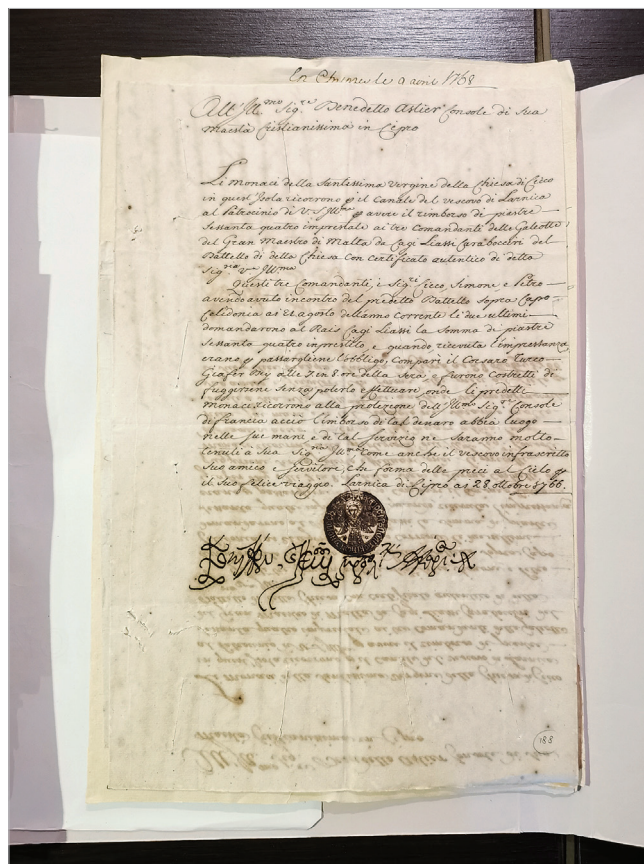 En Chypres le 9 avril 1768
All' Ill.mo Sig.re Benedetto Astier Console di Sua
Maestà Cristianissima in Cipro
Li Monaci della Santissima Vergine della Chiesa di Cicco
in quest'Isola ricorrono p il Canale del vescovo di Larnica
al Patrocinio di V.S. Ill.ma p avere il rimborso di piastre
Sessanta quatro imprestate ai tre Comandanti delle Galeotte
del Gran Maestro di Malta da Cagi Liassi Caraboccieri del
Battello di detta Chiesa con Certificato autentico di detta
Sig.ria V.ra Ill.ma
Questi tre Comandanti, i Sig.ri Cicco, Simone e Pietro
avendo avuto incontro del predetto Battello Sopra Capo
Celidonia ai 21 agosto dell'anno Corrente le due ultimi
domandarono al Rais Cagi Liassi la Somma di piastre
Sessanta quatro in prestito, e quando ricevuta l'imprestanza
erano p passargliene l'obbligo, Compari il Corsaro Turco
Giafer Bey alle 7 in 8 ore della Sera, e furono Costretti di
fuggersene Senza poterlo effettuare, onde li predetti
Monaci ricorrono alla protezione dell' Ill.mo Sig.r Console
di francia acciò l'imborso di tal denaro abbia luogo
nelle sue mani, e di tal Servizio ne Saranno molto
tenuti a Sua Sig.ria Ill.ma Come anche il vescovo infrascritto
Suo amico e Servitore, che forma delle preci al Cielo p
il Suo felice viaggio. Larnica di Cipro ai 28 ottobre 1766.
188